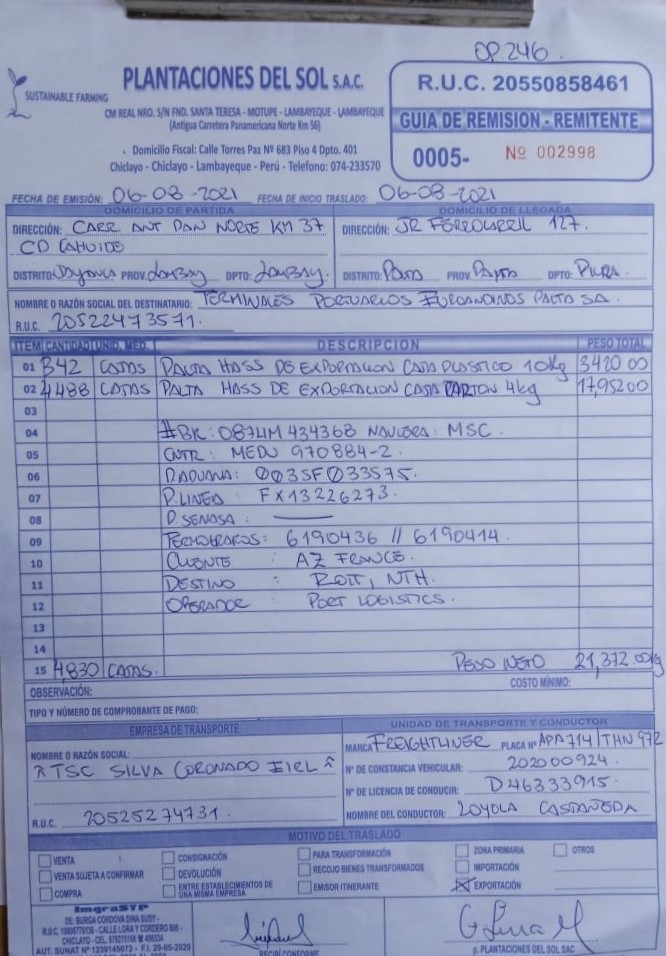 OP. 246.
SUSTAINABLE FARMING
PLANTACIONES DEL SOL S.A.C.
CM REAL NRO. S/N FND. SANTA TERESA - MOTUPE - LAMBAYEQUE - LAMBAYEQUE
(Antigua Carretera Panamericana Norte Km 56)
Domicilio Fiscal: Calle Torres Paz Nº 683 Piso 4 Dpto. 401
Chiclayo - Chiclayo - Lambayeque - Perú - Telefono: 074-233570
R.U.C. 20550858461
GUIA DE REMISION - REMITENTE
0005- Nº 002998
FECHA DE EMISIÓN: 06-08-2021 FECHA DE INICIO TRASLADO: 06-08-2021
DOMICILIO DE PARTIDA
DIRECCIÓN: CARR ANT PAN NORTE KM 37
CD CAHUIDE
DISTRITO: Jayanca PROV: Lambay DPTO: Lambay.
DOMICILIO DE LLEGADA
DIRECCIÓN: JR FERROCARRIL 127.
DISTRITO: Paita PROV. Paita DPTO: PIURA.
NOMBRE O RAZÓN SOCIAL DEL DESTINATARIO: TERMINALES PORTUARIOS EUROANDINOS PAITA SA.
R.U.C. 20522473571.
ITEM CANTIDAD UNID. MED. DESCRIPCION PESO TOTAL
01 342 CAJAS PALTA HASS DE EXPORTACION CAJA PLASTICO 10kg 3420.00
02 4488 CAJAS PALTA HASS DE EXPORTACION CAJA CARTON 4kg 17,952.00
03
04 #BK: 087LIM434368 NAVIERA: MSC.
05 CNTR: MEDU 970884-2.
06 P.ADUANA: 003SF033575.
07 P.LINEA: FX13226273.
08 P.SENASA:
09 TERMOGRAFOS: 6190436 // 6190414.
10 CLIENTE : AZ FRANCE.
11 DESTINO : ROTT, NTH.
12 OPERADOR : PORT LOGISTICS.
13
14
15 4,830 CAJAS. PESO NETO 21,372.00kg
OBSERVACIÓN: COSTO MÍNIMO:
TIPO Y NÚMERO DE COMPROBANTE DE PAGO:
EMPRESA DE TRANSPORTE
NOMBRE O RAZÓN SOCIAL:
TSC SILVA CORONADO EIRL
R.U.C. 20525274731.
UNIDAD DE TRANSPORTE Y CONDUCTOR
MARCA FREIGHTLINER PLACA Nº APA714/THN 972
Nº DE CONSTANCIA VEHICULAR: 202000924.
Nº DE LICENCIA DE CONDUCIR: D46333915.
NOMBRE DEL CONDUCTOR: LOYOLA CASTAÑEDA
MOTIVO DEL TRASLADO
VENTA CONSIGNACIÓN PARA TRANSFORMACIÓN ZONA PRIMARIA OTROS
VENTA SUJETA A CONFIRMAR DEVOLUCIÓN RECOJO BIENES TRANSFORMADOS IMPORTACIÓN
COMPRA ENTRE ESTABLECIMIENTOS DE UNA MISMA EMPRESA EMISOR ITINERANTE EXPORTACIÓN
ImgraSYP
DE: BURGA CORDOVA DINA SUSY -
CALLE LORA Y CORDERO 806 -
AUT. SUNAT Nº 1239145073 - F.I. 29-05-2020
RECIBI CONFORME
p. PLANTACIONES DEL SOL SAC